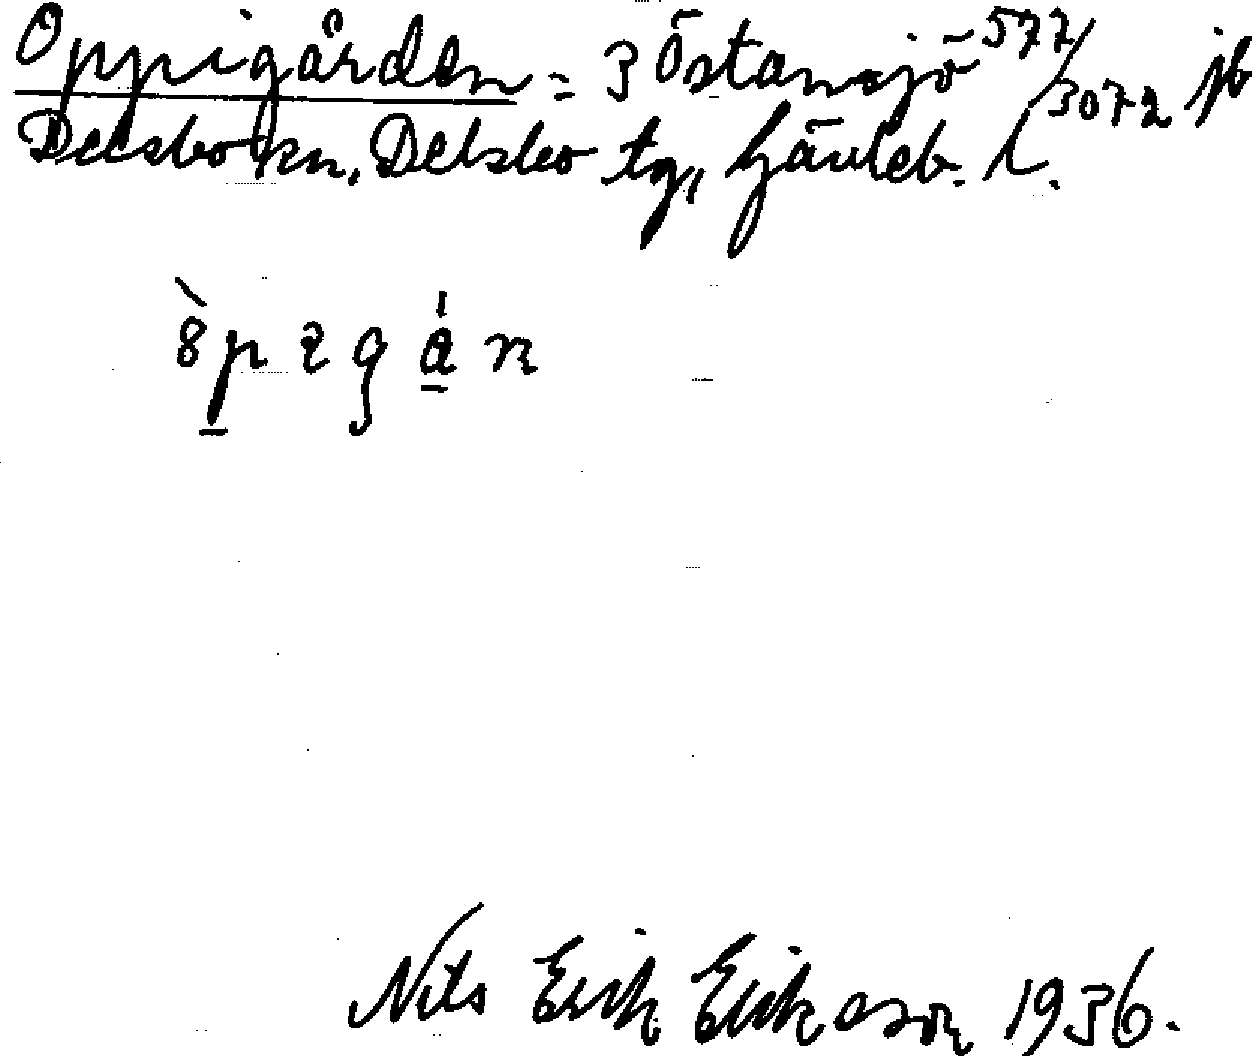 Oppigården = 3 Östansjö 577/3072 jb
Delsbo sn, Delsbo tg, Gävleb. l.
Nils Erik Eriksson 1936.